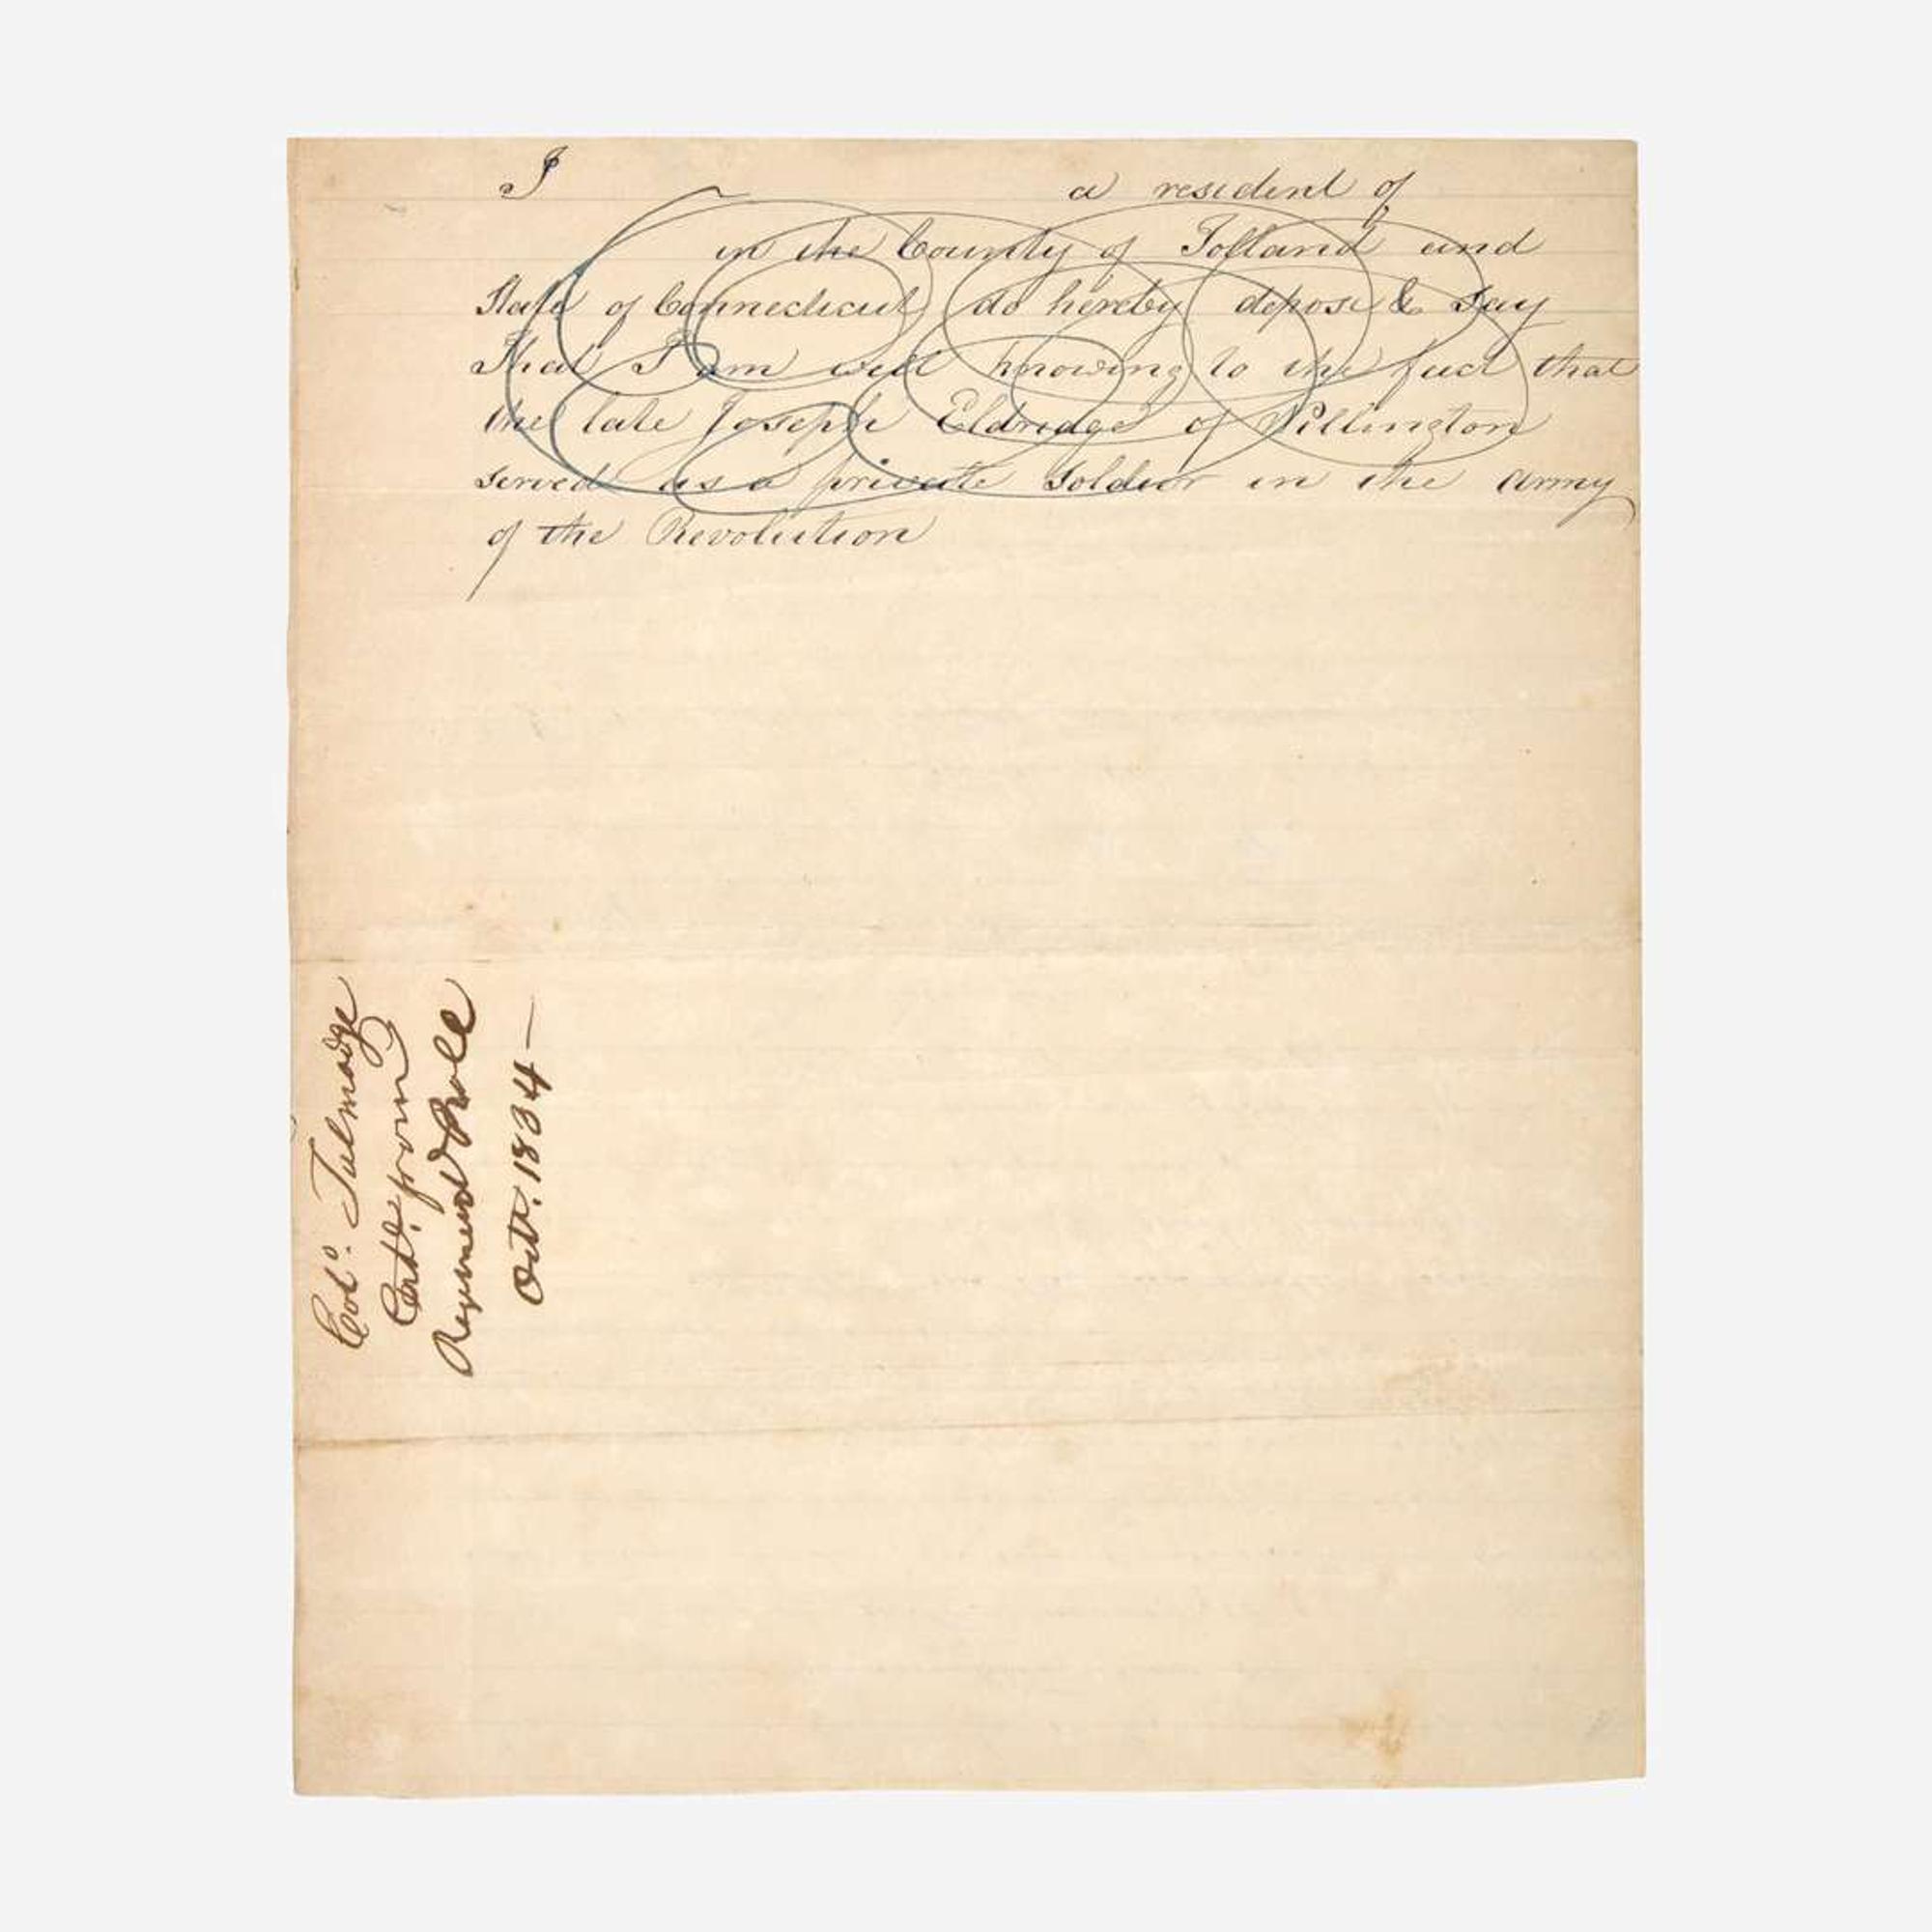 I a resident of
in the County of Tolland and
State of Connecticut do hereby depose & Say
That I am well knowing to the fact that
the late Joseph Eldridge of Willington
served as a private Soldier in the Army
of the Revolution
Col.º Talmadge
from
Regimental Roll
Oct. 1834 —